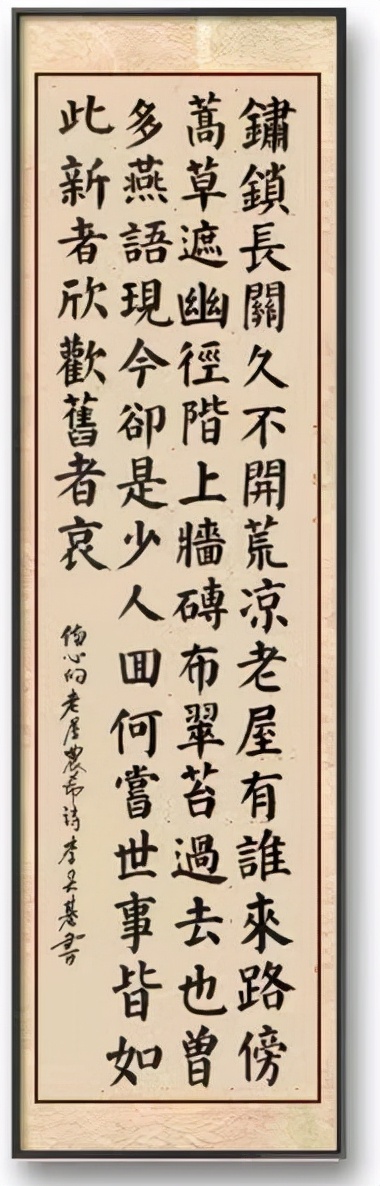 鏽鎖長關久不開荒凉老屋有誰來路傍
蒿草遮幽徑階上牆磚布翠苔過去也曾
多燕語現今卻是少人囬何嘗世事皆如
此新者欣歡舊者哀
傷心的老屋農希詩李書